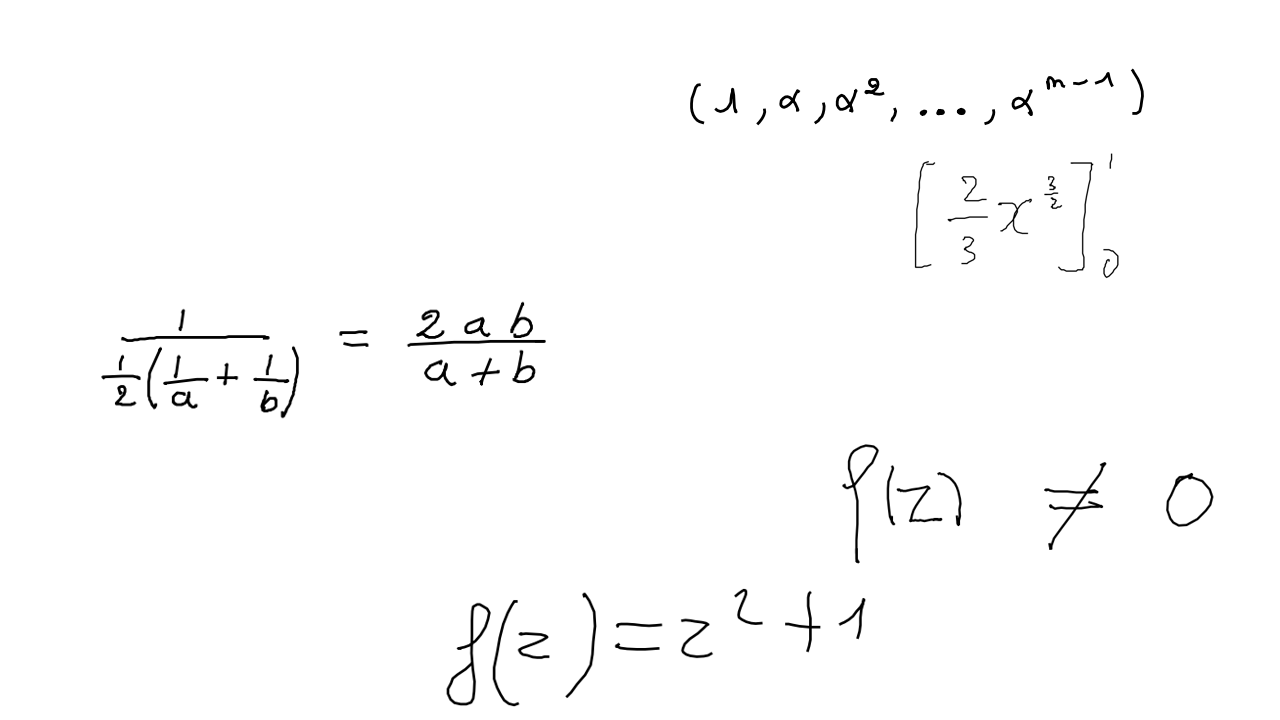 (1, α, α², ..., α^{m-1})
[\frac{2}{3} x^{\frac{3}{2}}]_0^1
\frac{1}{\frac{1}{2}(\frac{1}{a} + \frac{1}{b})} = \frac{2ab}{a+b}
f(z) ≠ 0
f(z) = z² + 1